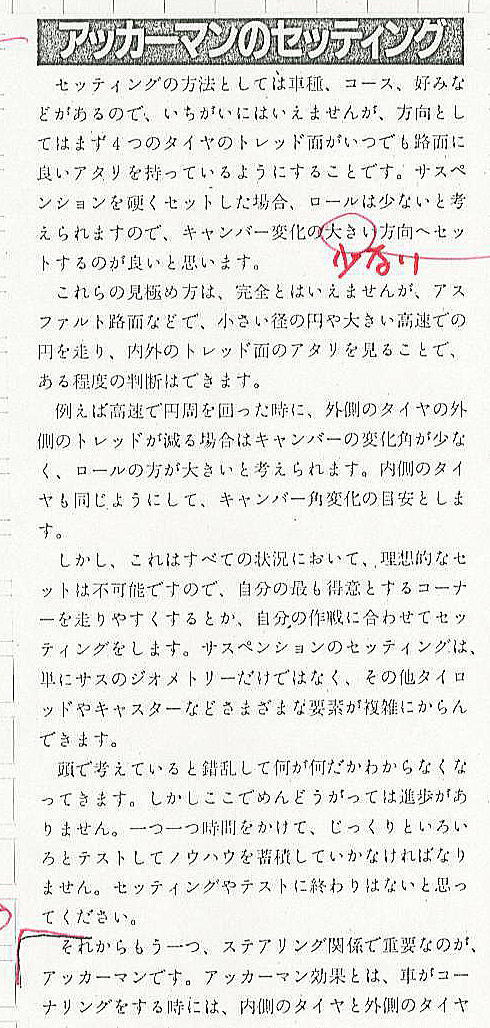 アッカーマンのセッティング
セッティングの方法としては車種、コース、好みな
どがあるので、いちがいにはいえませんが、方向とし
てはまず4つのタイヤのトレッド面がいつでも路面に
良いアタリを持っているようにすることです。サスペ
ンションを硬くセットした場合、ロールは少ないと考
えられますので、キャンバー変化の大きい方向へセッ
少ない
トするのが良いと思います。
これらの見極め方は、完全とはいえませんが、アス
ファルト路面などで、小さい径の円や大きい高速での
円を走り、内外のトレッド面のアタリを見ることで、
ある程度の判断はできます。
例えば高速で円周を回った時に、外側のタイヤの外
側のトレッドが減る場合はキャンバーの変化角が少な
く、ロールの方が大きいと考えられます。内側のタイ
ヤも同じようにして、キャンバー角変化の目安としま
す。
しかし、これはすべての状況において、理想的なセ
ットは不可能ですので、自分の最も得意とするコーナ
ーを走りやすくするとか、自分の作戦に合わせてセッ
ティングをします。サスペンションのセッティングは、
単にサスのジオメトリーだけではなく、その他タイロ
ッドやキャスターなどさまざまな要素が複雑にからん
できます。
頭で考えていると錯乱して何が何だかわからなくな
ってきます。しかしここでめんどうがっては進歩があ
りません。一つ一つ時間をかけて、じっくりといろい
ろとテストしてノウハウを蓄積していかなければなり
ません。セッティングやテストに終わりはないと思っ
てください。
それからもう一つ、ステアリング関係で重要なのが、
アッカーマンです。アッカーマン効果とは、車がコー
ナリングをする時には、内側のタイヤと外側のタイヤ